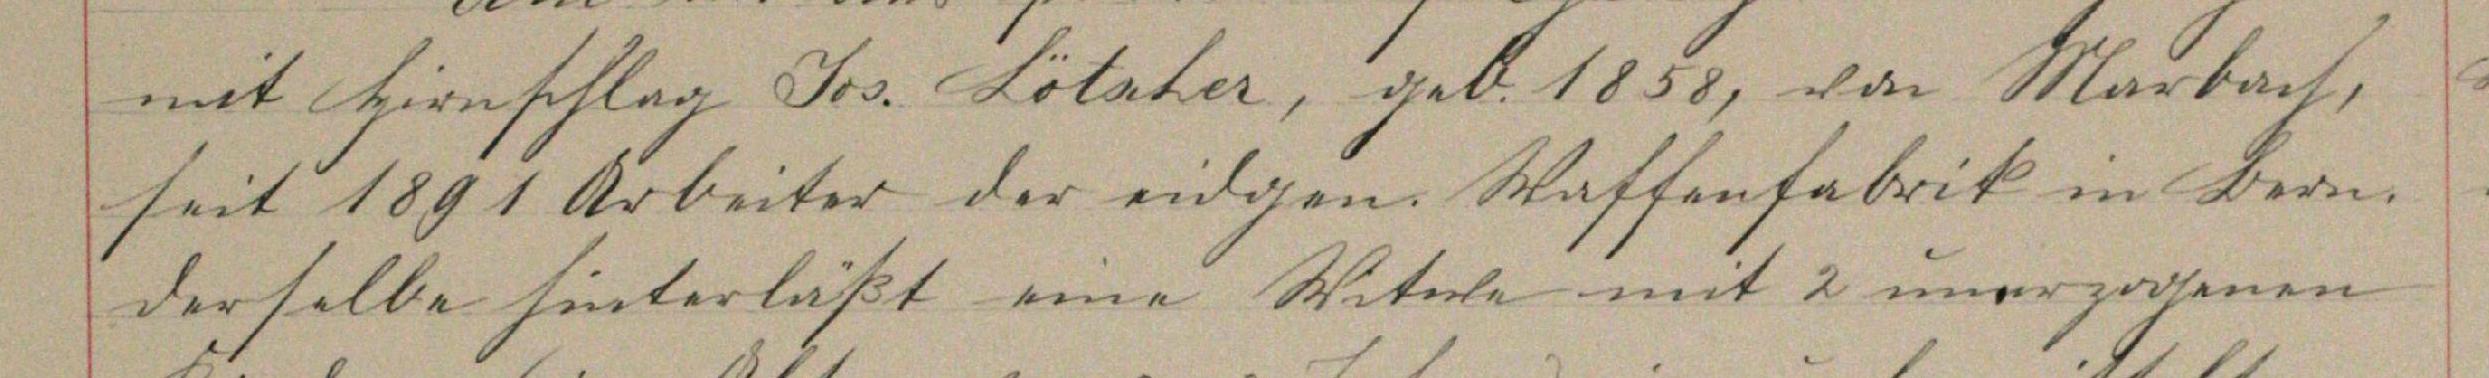 mit Hirnschlag Jos. Lötscher, geb. 1858, von Marbach,
seit 1891 Arbeiter der eidgen. Waffenfabrik in Bern.
derselbe hinterläßt eine Witwe mit 2 unerzogenen